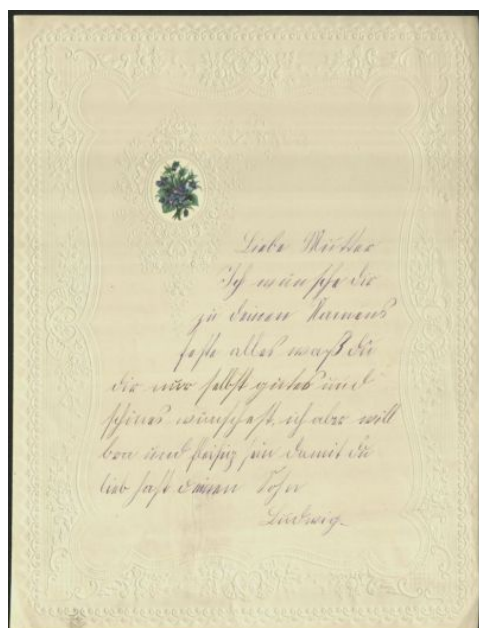 Liebe Mutter
Ich wünsche dir
zu deinen Namens
feste alles waß du
dir nur selbst gutes und
schönes wünschest, ich aber will
bra und fleisig sein damit du
lieb hast deinen Sohn
Ludwig.